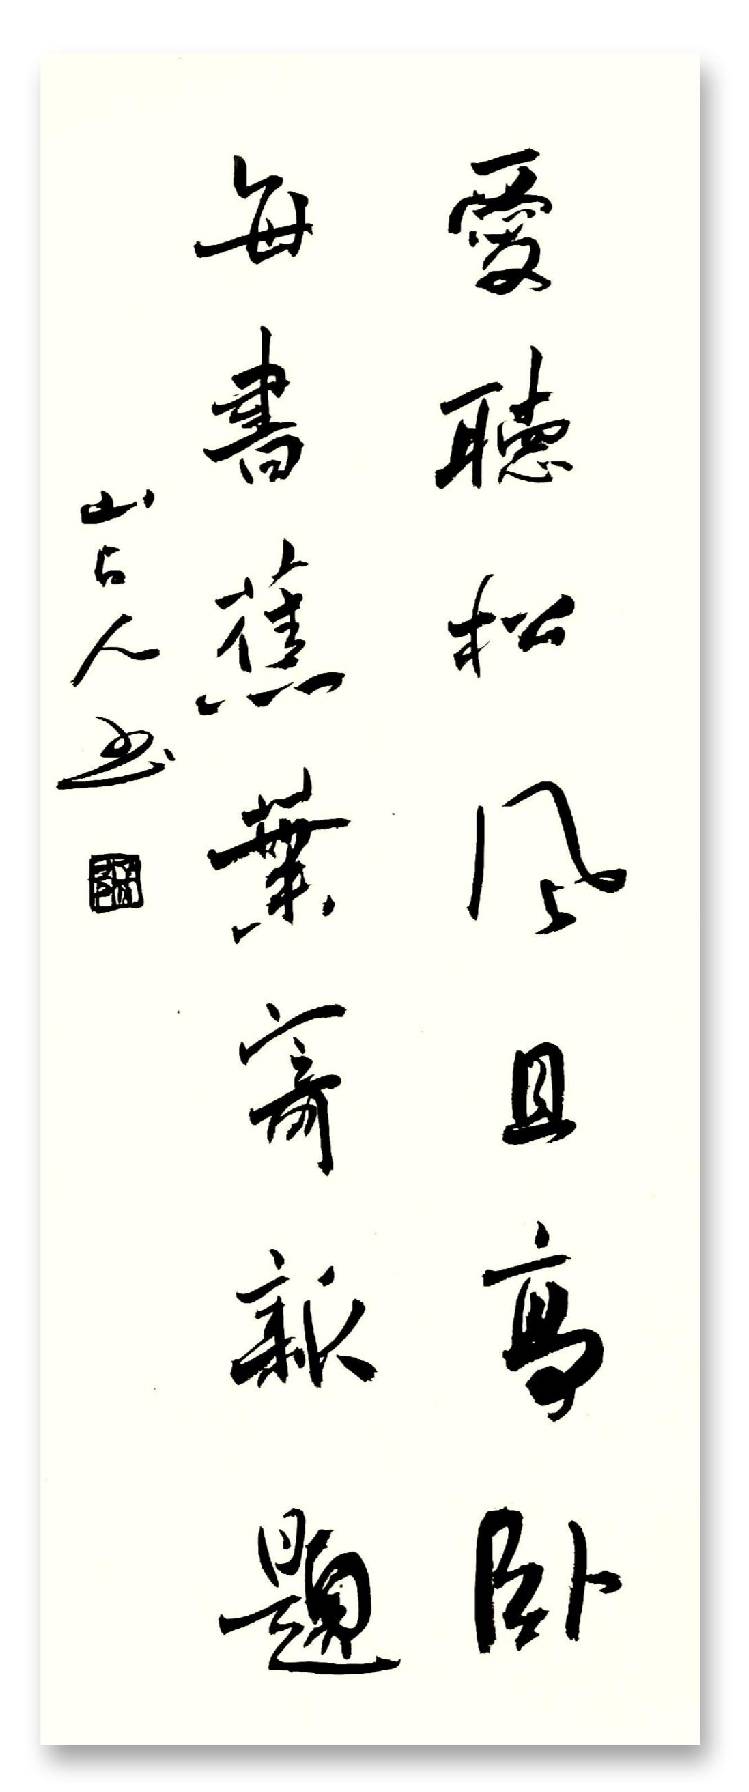 愛聽松風且高卧
每書蕉葉寄新題
山占人书